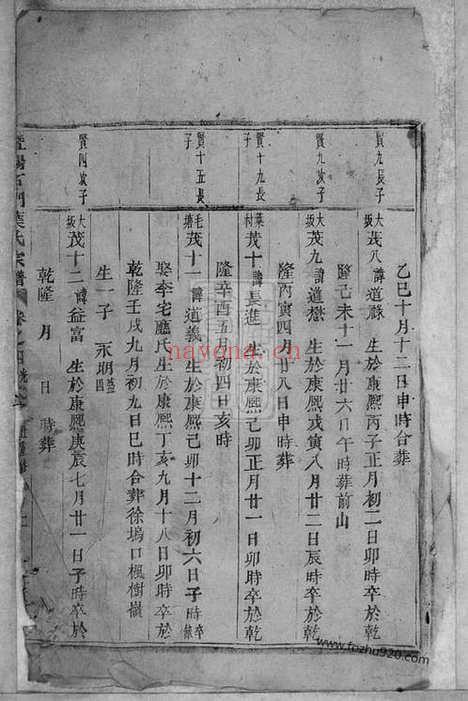 乙巳十月十二日申時合葬
賢九長子
大坂 茂八 諱道祿 生於康熙丙子正月初二日卯時卒於乾
隆己未十一月廿六日午時葬前山
賢九次子
大坂 茂九 諱道嶽 生於康熙戊寅八月廿二日辰時卒於乾
隆丙寅四月廿八日申時葬
賢十九長子
葉村 茂十 諱長進 生於康熙己卯正月廿一日卯時卒於乾
隆辛酉五月初四日亥時
賢十五長子
毛塘 茂十一 諱道義 生於康熙己卯十二月初六日子時卒
娶李宅應氏生於康熙丁亥九月十八日卯時卒於
乾隆壬戌九月初九日巳時合葬徐塢口楓樹嶺
生一子 永明
賢四次子
大坂 茂十二 諱益富 生於康熙庚辰七月廿一日子時卒於
乾隆 月 日 時葬
葉氏宗譜
nayona.cn
www.fozhu920.com